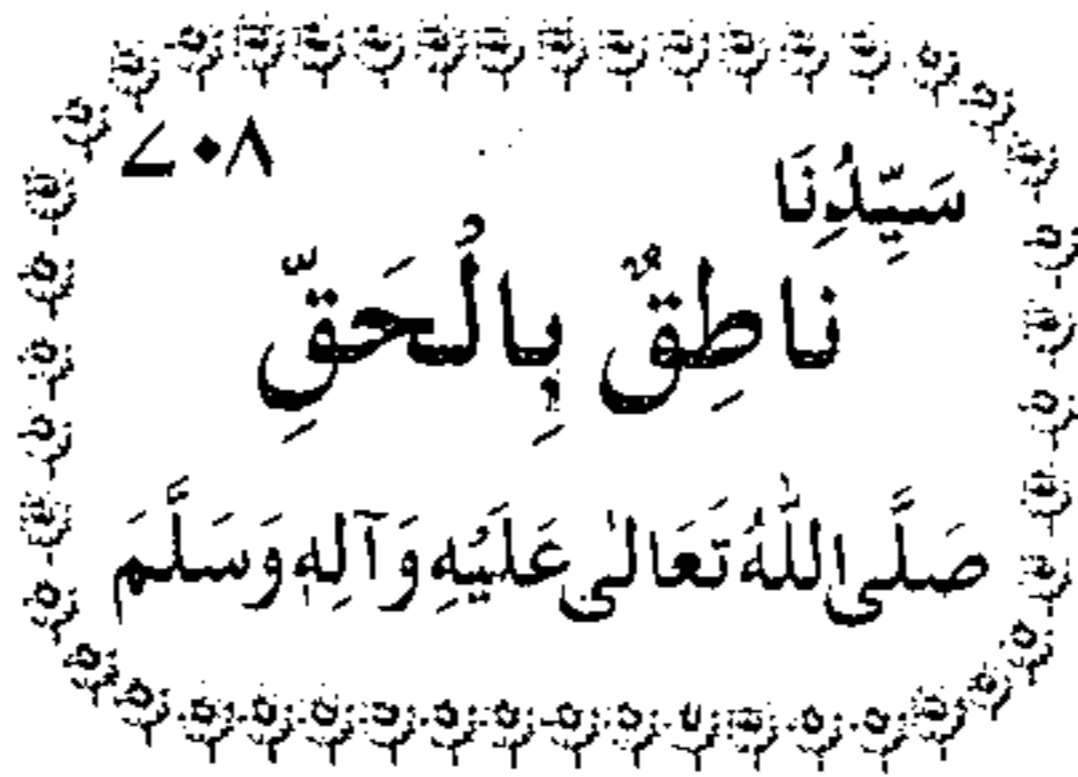 ۷۰۸
سَيِّدُنَا
نَاطِقٌ بِالْحَقِّ
صَلَّى اللّٰهُ تَعَالٰى عَلَيْهِ وَآلِهٖ وَسَلَّمَ